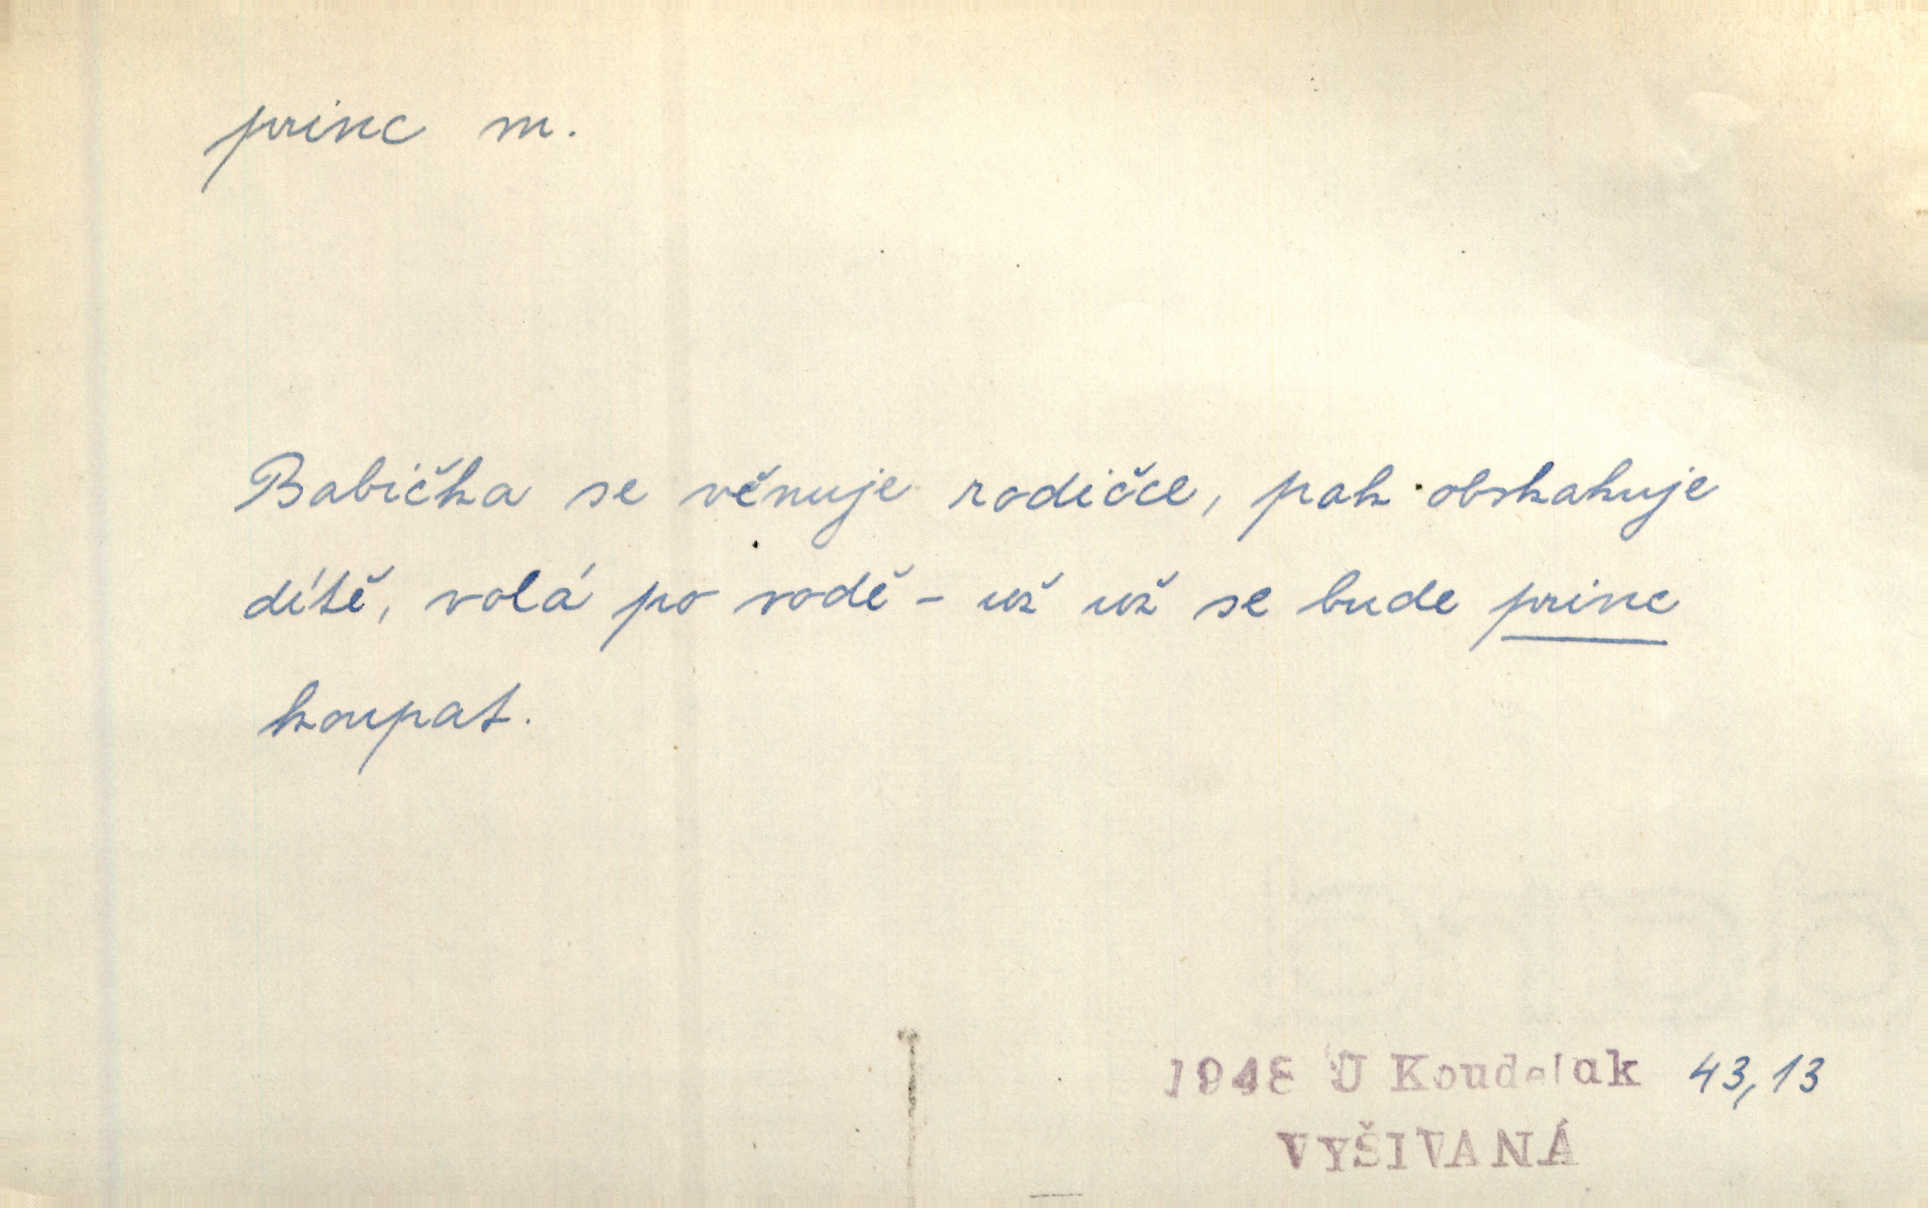 princ m.
Babička se věnuje rodičce, pak obskakuje
dítě, volá po vodě - už už se bude princ
koupat.
1948 J Koudelak 43,13
VYŠIVANÁ